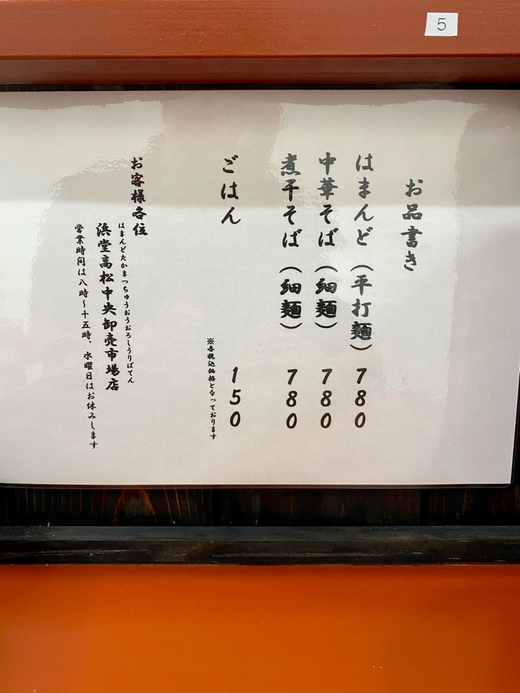 5
お品書き
はまんど（平打麺）780
中華そば（細麺）780
煮干そば（細麺）780
ごはん 150
※各税込価格となっております
お客様各位
はまんどたかまつちゅうおうおろしうりばてん
浜堂高松中央卸売市場店
営業時間は八時～十五時、水曜日はお休みします